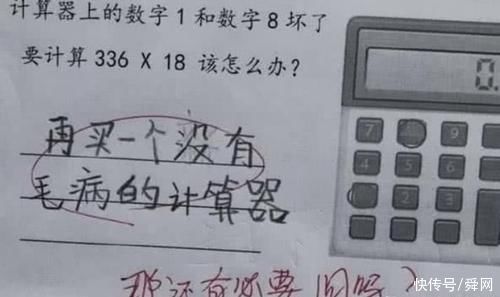 计算器上的数字1和数字8坏了
要计算336 X 18 该怎么办?
0.
7
9
4
5
6
2
3
再买一个没有
毛病的计算器
那还有必要问吗?
快传号/舜网